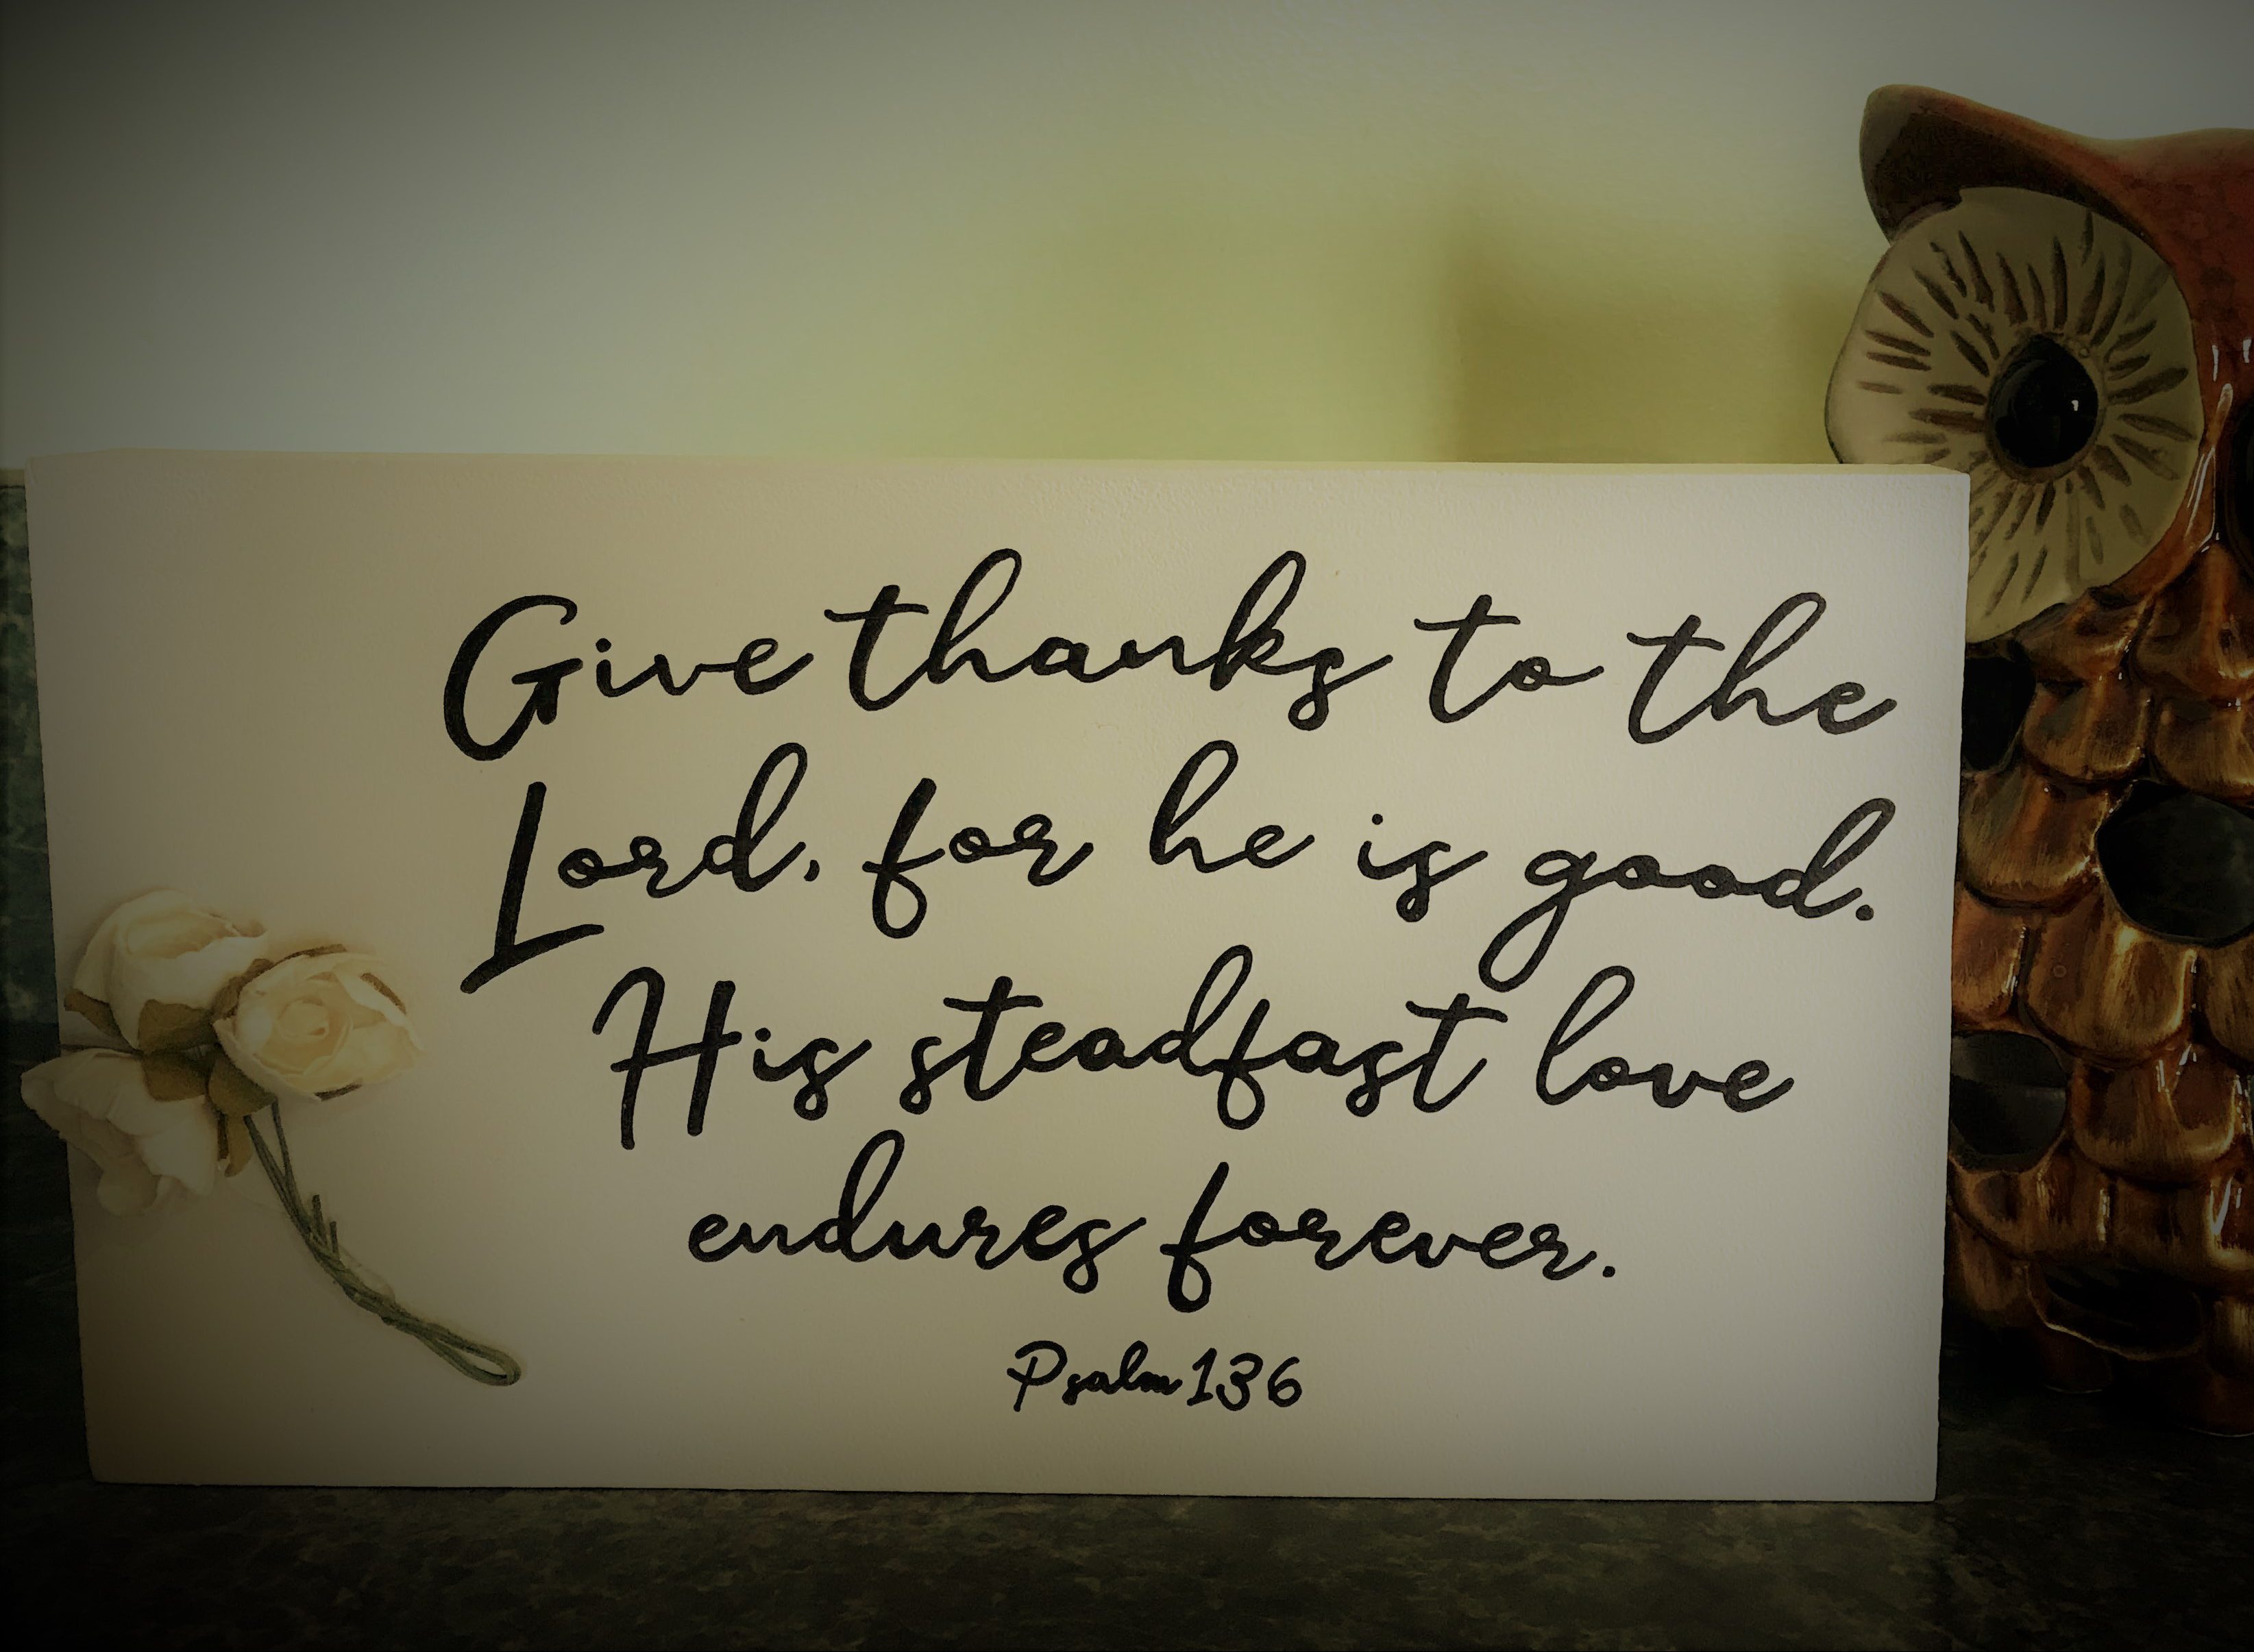 Give thanks to the
Lord, for he is good.
His steadfast love
endures forever.
Psalm 136